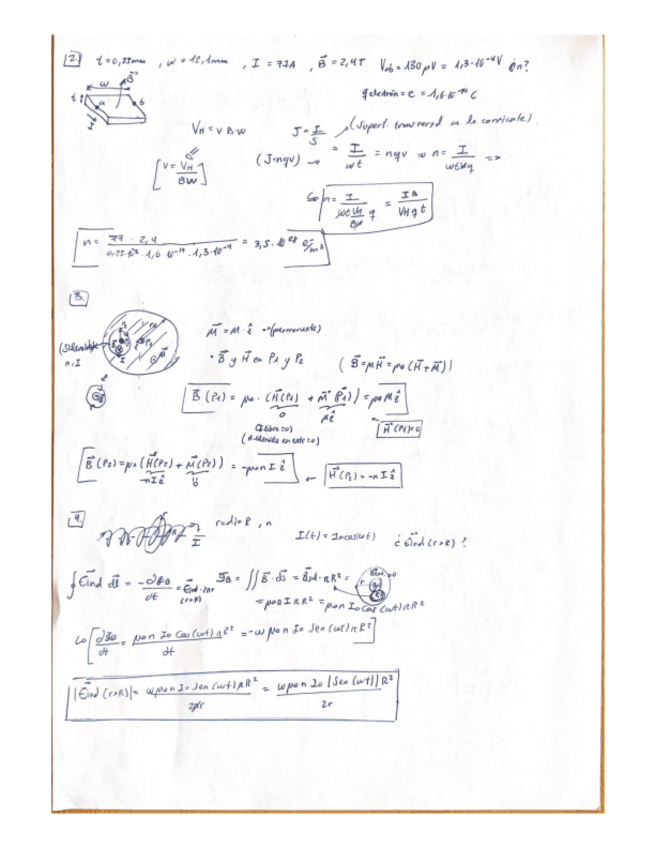 2. t=0,23mm , w=12,1mm , I=77A , B⃗=2,4T Vab=130μV=1,3·10⁻⁴V ¿n?
t w B⃗ a b I
qelectrón=e=1,6·10⁻¹⁹C
V_H=vBw J=I/S (superf. transversal a la corriente).
[v=V_H/Bw] (J=nqv) → = I/wt = nqv ⇒ n=I/wtvq ⇒
n= I/(wt V_H/Bw q) = IB/V_H q t
n= 77·2,4/(0,23·10⁻³·1,6·10⁻¹⁹·1,3·10⁻⁴) = 3,5·10²⁸ e⁻/m³
3.
(Solenoide n,I M⃗=M·ẑ →(permanente)
· B⃗ y H⃗ en P1 y P2 (B⃗=μH⃗=μ0(H⃗+M⃗))
B⃗(P1)=μ0·(H⃗(P1)+M⃗(P1))=μ0Mẑ
0 Mẑ
H⃗(P1)=0
B⃗(P2)=μ0(H⃗(P2)+M⃗(P2))=-μ0nIẑ ← H⃗(P2)=-nIẑ
-nIẑ 0
4. radio R, n
I I(t)=I0cos(ωt) ¿εind(r>R)?
∮ε⃗ind dl⃗ = -∂ΦB/dt = εind·2πr (r>R) ΦB=∬B⃗·ds⃗=B⃗sol·πR²=
=μ0nIπR²=μ0nI0Cos(ωt)πR²
[∂ΦB/dt = μ0nI0Cos(ωt)πR²/dt = -ωμ0nI0Sen(ωt)πR²]
|ε⃗ind(r>R)|= ωμ0nI0Sen(ωt)πR²/2πr = ωμ0nI0|Sen(ωt)|R²/2r